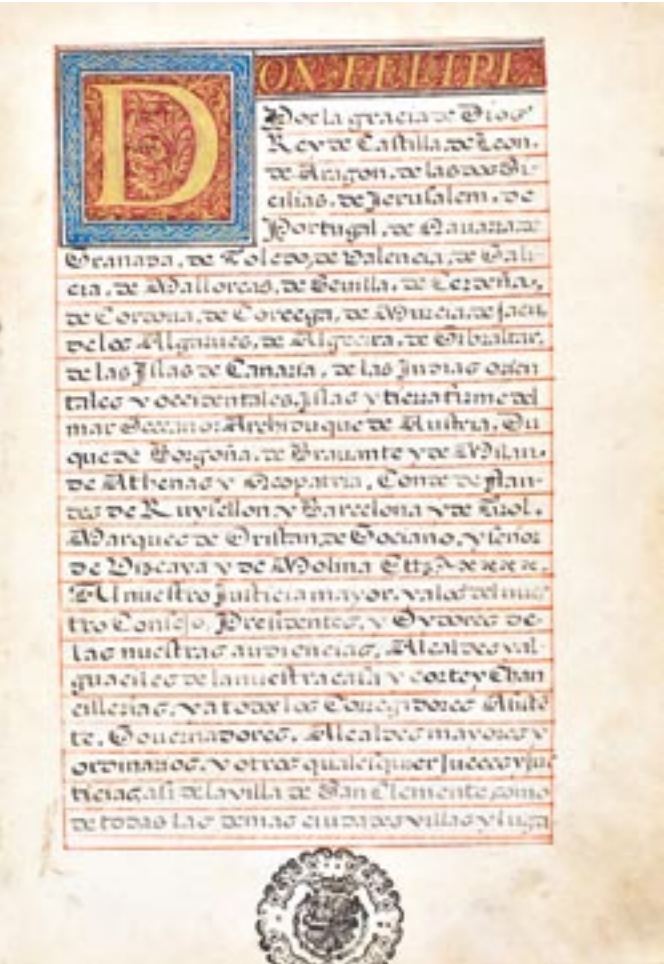 DON FELIPE
Por la gracia de Dios
Rey de Castilla, de Leon,
de Aragon, de las dos Si-
cilias, de Jerusalem, de
Portugal, de Nauarra, de
Granada, de Toledo, de Valencia, de Gali-
cia, de Mallorcas, de Seuilla, de Cerdeña,
de Cordoua, de Corcega, de Murcia, de Jaen,
de los Algarues, de Algecira, de Gibraltar,
de las Islas de Canaria, de las Indias orien
tales y occidentales, Islas y tierra firme del
mar Occeano: Archiduque de Austria, Du
que de Borgoña, de Brauante y de Milan,
de Athenas y Neopatria, Conde de Flan-
des de Ruysellon y Barcelona y de Tirol,
Marques de Oristan, de Gociano, y señor
de Vizcaya y de Molina
Al nuestro Justicia mayor, y alos del nues
tro Consejo, Presidentes, y Oydores de
las nuestras audiencias, Alcaldes y al-
guaciles de la nuestra casa y corte y Chan
cillerias, y a todos los Corregidores Asisté
te, Gouernadores, Alcaldes mayores y
ordinarios, y otros qualesquier Jueces y Jus
ticias, asi de la villa de San Clemente como
de todas las demas ciudades villas y luga